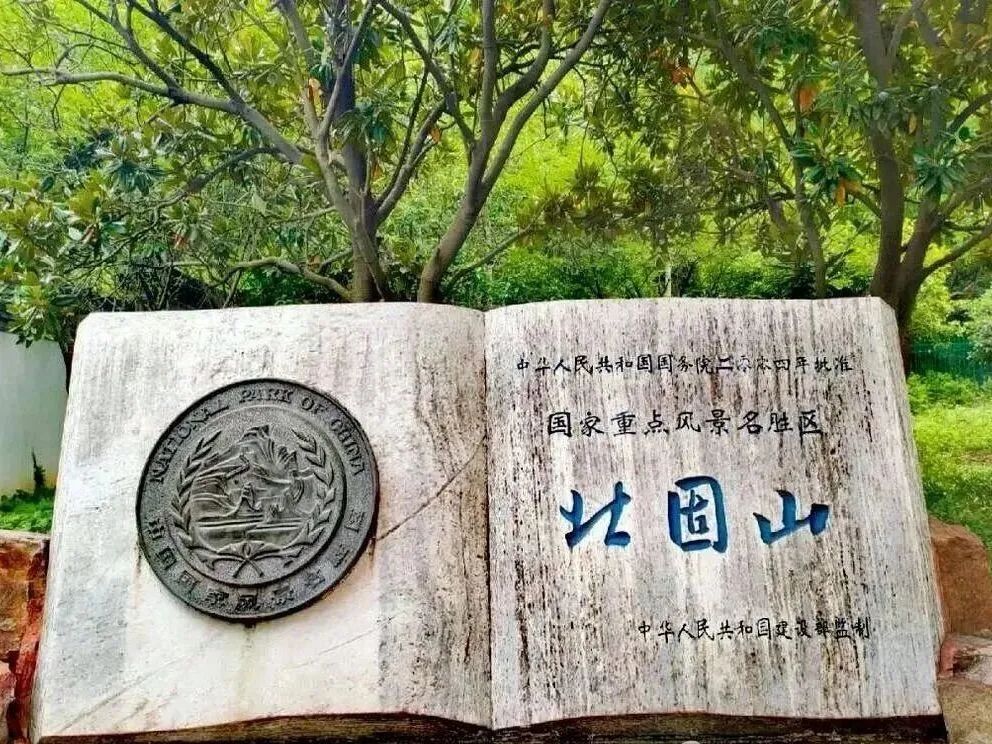 NATIONAL PARK OF CHINA
中国国家风景名胜区
中华人民共和国国务院二〇〇四年批准
国家重点风景名胜区
北固山
中华人民共和国建设部监制